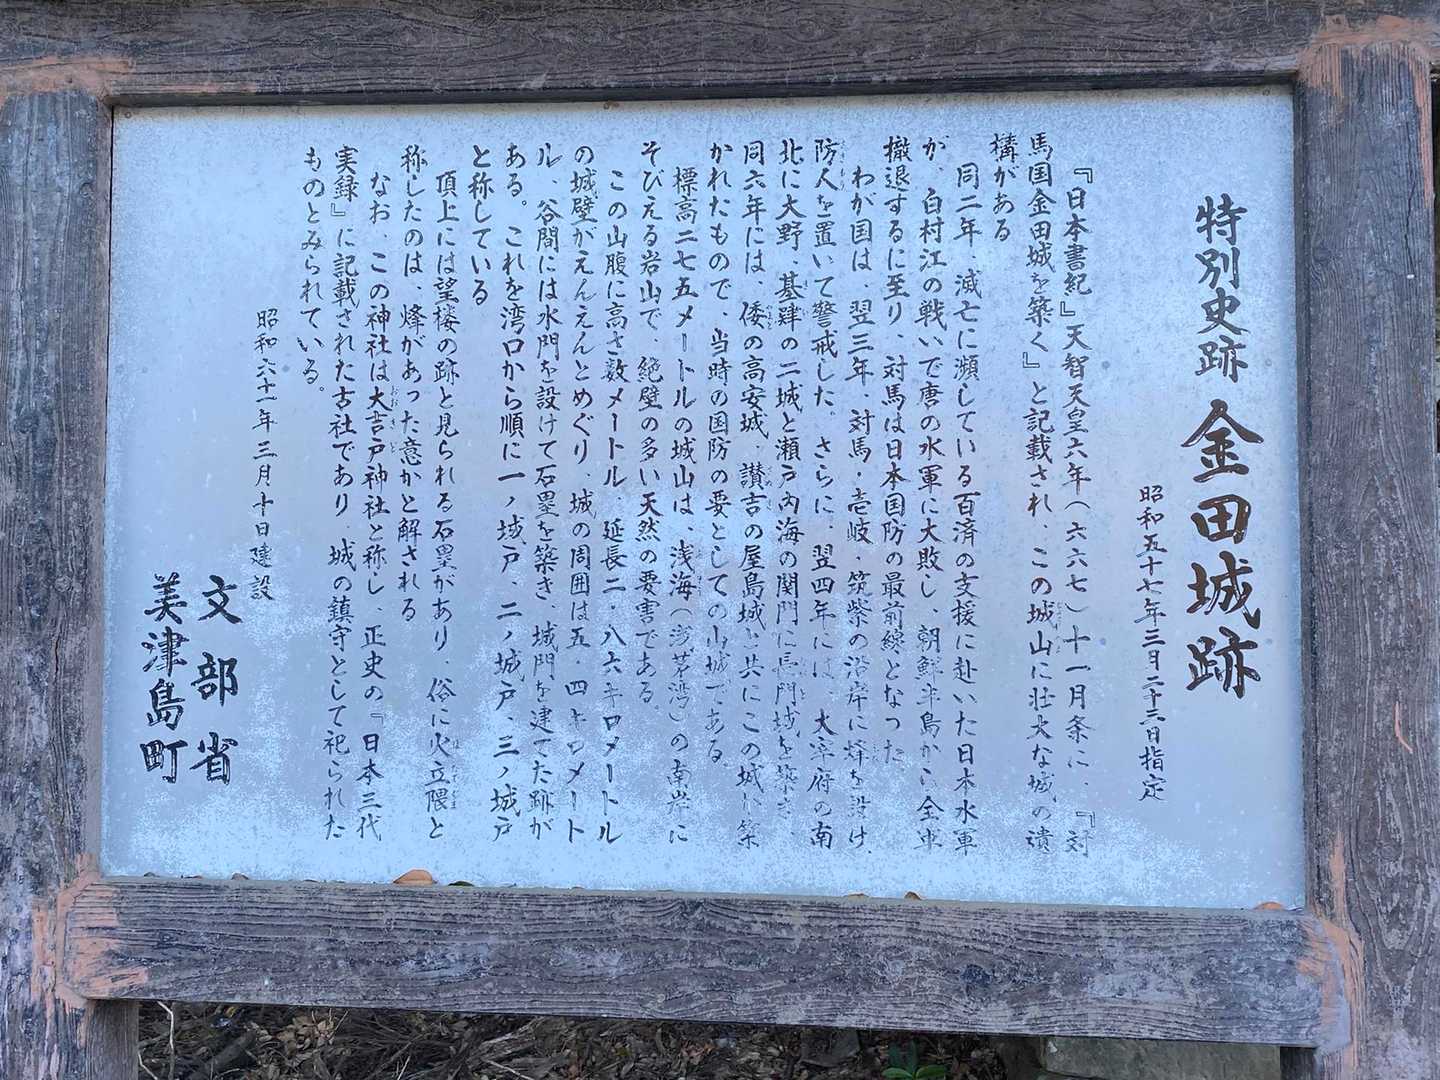 特別史跡 金田城跡
昭和五十七年三月二十三日指定
『日本書紀』天智天皇六年(六六七)十一月条に、『対
馬国金田城を築く』と記載され、この城山に壮大な城の遺
構がある
同二年、滅亡に瀕している百済の支援に赴いた日本水軍
が、白村江の戦いで唐の水軍に大敗し、朝鮮半島から全軍
撤退するに至り、対馬は日本国防の最前線となった
わが国は、翌三年、対馬・壱岐・筑紫の沿岸に烽を設け、
防人を置いて警戒した。さらに、翌四年には、大宰府の南
北に大野、基肄の二城と瀬戸内海の関門に長門城を築き、
同六年には、倭の高安城、讃吉の屋島城と共にこの城が築
かれたもので、当時の国防の要としての山城である
標高二七五メートルの城山は、浅海(浅茅湾)の南岸に
そびえる岩山で、絶壁の多い天然の要害である。
この山腹に高さ数メートル、延長二・八六キロメートル
の城壁がえんえんとめぐり、城の周囲は五・四キロメート
ル、谷間には水門を設けて石塁を築き、城門を建てた跡が
ある。これを湾口から順に一ノ城戸、二ノ城戸、三ノ城戸
と称している
頂上には望楼の跡と見られる石塁があり、俗に火立隈と
称したのは、烽があった意かと解される
なお、この神社は大吉戸神社と称し、正史の『日本三代
実録』に記載された古社であり、城の鎮守として祀られた
ものとみられている。
昭和六十一年三月十日建設
文部省
美津島町